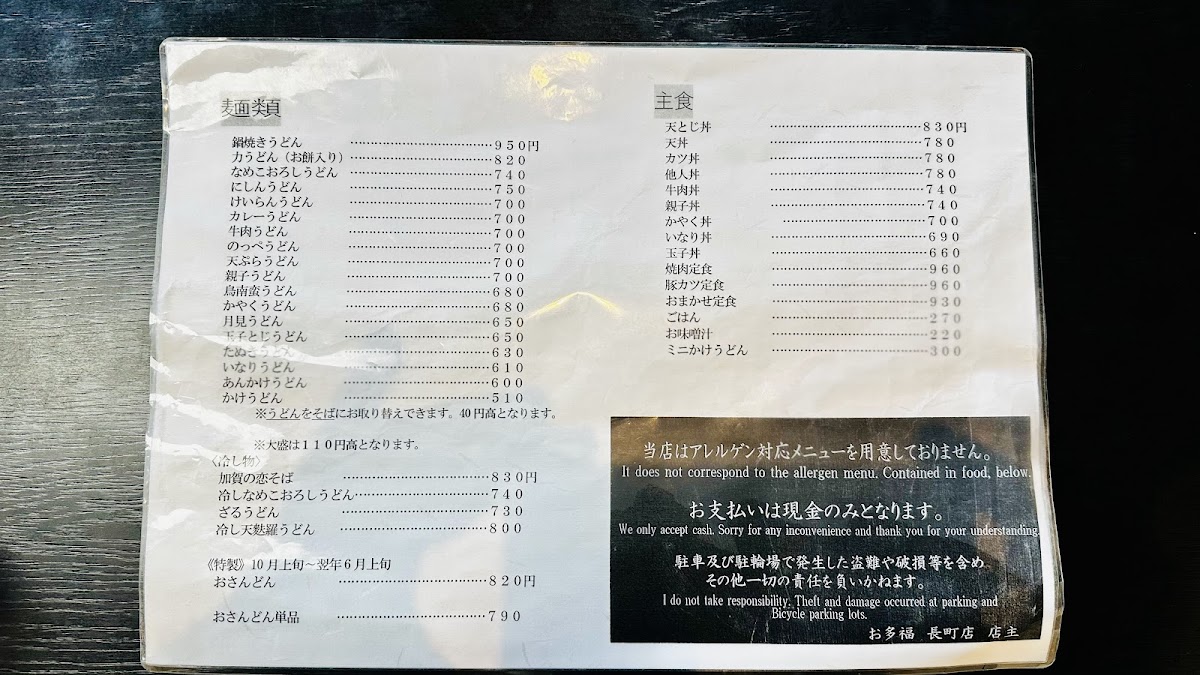 麺類
鍋焼きうどん ………………………………950円
力うどん（お餅入り）………………………………820
なめこおろしうどん ………………………………740
にしんうどん ………………………………750
けいらんうどん ………………………………700
カレーうどん ………………………………700
牛肉うどん ………………………………700
のっぺうどん ………………………………700
天ぷらうどん ………………………………700
親子うどん ………………………………700
鳥南蛮うどん ………………………………680
かやくうどん ………………………………680
月見うどん ………………………………650
玉子とじうどん ………………………………650
たぬきうどん ………………………………630
いなりうどん ………………………………610
あんかけうどん ………………………………600
かけうどん ………………………………510
※うどんをそばにお取り替えできます。40円高となります。
※大盛は110円高となります。
〈冷し物〉
加賀の恋そば ………………………………830円
冷しなめこおろしうどん………………………………740
ざるうどん ………………………………730
冷し天麩羅うどん ………………………………800
《特製》10月上旬～翌年6月上旬
おさんどん ………………………………820円
おさんどん単品 ………………………………790
主食
天とじ丼 ………………………………830円
天丼 ………………………………780
カツ丼 ………………………………780
他人丼 ………………………………780
牛肉丼 ………………………………740
親子丼 ………………………………740
かやく丼 ………………………………700
いなり丼 ………………………………690
玉子丼 ………………………………660
焼肉定食 ………………………………960
豚カツ定食 ………………………………960
おまかせ定食 ………………………………930
ごはん ………………………………270
お味噌汁 ………………………………220
ミニかけうどん ………………………………300
当店はアレルゲン対応メニューを用意しておりません。
It does not correspond to the allergen menu. Contained in food, below.
お支払いは現金のみとなります。
We only accept cash. Sorry for any inconvenience and thank you for your understanding.
駐車及び駐輪場で発生した盗難や破損等を含め
その他一切の責任を負いかねます。
I do not take responsibility. Theft and damage occurred at parking and
Bicycle parking lots.
お多福 長町店 店主